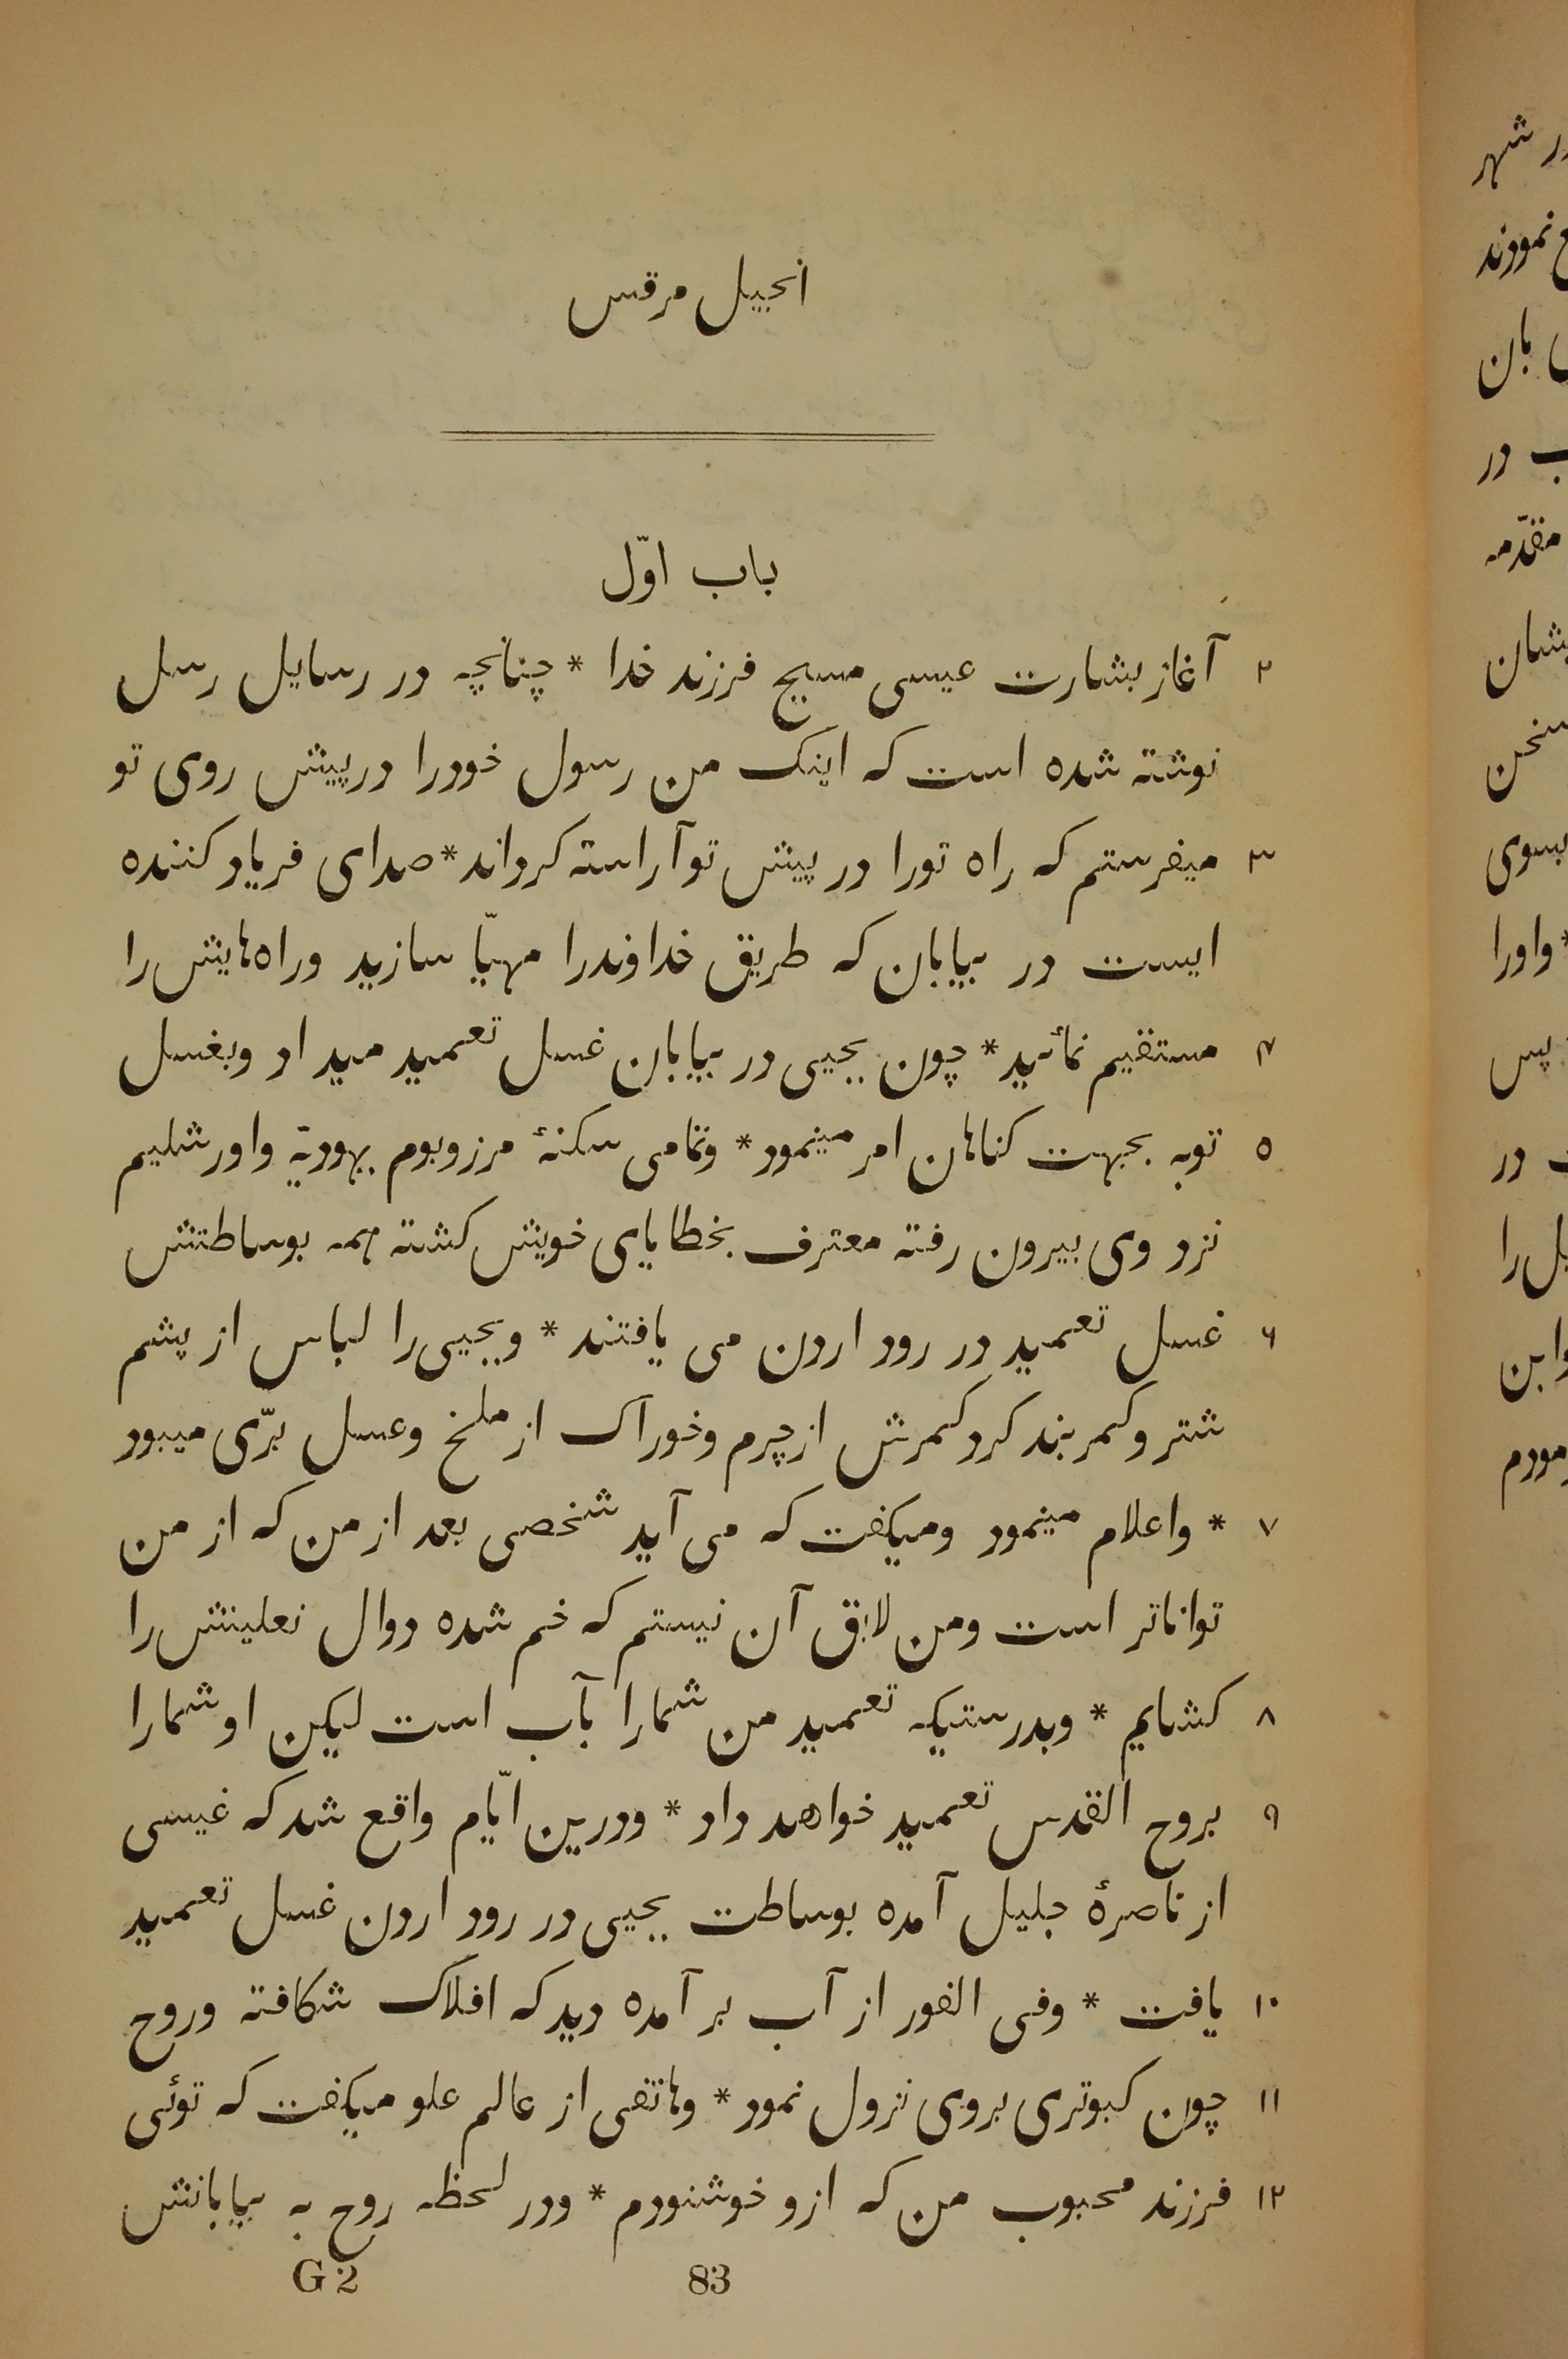 انجیل مرقس
باب اوّل
۲ آغاز بشارت عیسی مسیح فرزند خدا * چنانچه در رسایل رسل
نوشته شده است که اینک من رسول خودرا در پیش روی تو
۳ میفرستم که راه تورا در پیش تو آراسته کرداند * صدای فریاد کننده
ایست در بیابان که طریق خداوندرا مهیّا سازید وراه‌هایش را
۴ مستقیم نمائید * چون یحیی در بیابان غسل تعمید میداد وبغسل
۵ توبه بجهت کناهان امر مینمود * وتمامی سکنهٔ مرزوبوم یهودیّه واورشلیم
نزد وی بیرون رفته معترف بخطایای خویش کشته همه بوساطتش
۶ غسل تعمید در رود اردن می یافتند * ویحیی را لباس از پشم
شتر وکمربند کرد کمرش از چرم وخوراک از ملخ وعسل برّی میبود
۷ * واعلام مینمود ومیکفت که می آید شخصی بعد از من که از من
تواناتر است ومن لایق آن نیستم که خم شده دوال نعلینش را
۸ کشایم * وبدرستیکه تعمید من شمارا بآب است لیکن او شمارا
۹ بروح القدس تعمید خواهد داد * ودرین ایّام واقع شد که غیسی
از ناصرهٔ جلیل آمده بوساطت یحیی در رود اردن غسل تعمید
۱۰ یافت * وفی الفور از آب بر آمده دید که افلاک شکافته وروح
۱۱ چون کبوتری بروی نزول نمود * وهاتفی از عالم علو میکفت که توئی
۱۲ فرزند محبوب من که ازو خوشنودم * ودر لحظه روح به بیابانش
83 G 2
در شهر
نمودند
بان
در
مقدّمه
سخن
بسوی
* واورا
پس
در